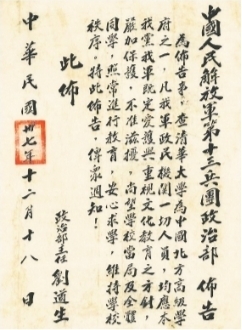 中國人民解放軍第十三兵團政治部 佈告
為佈告事,查清華大學為中國北方高級學
府之一,凡我軍政民機關一切人員,均應本
我黨我軍既定愛護與重視文化教育之方針,
嚴加保護,不准滋擾,尚望學校當局及全體
同學,照常進行教育,安心求學,維持學校
秩序。特此佈告,俾眾週知!
此佈
政治部主任 劉道生
中華民國卅七年十二月十八日